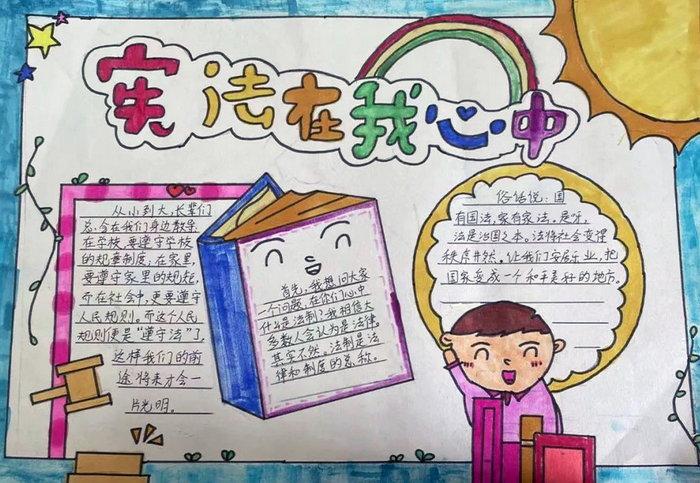 宪法在我心中
从小到大,长辈们
总会在我们身边教导
在学校,要遵守学校
的规章制度,在家里,
要遵守家里的规矩,
而在社会中,更要遵守
人民规则。而这个人民
规则便是“遵守法”了,
这样我们的前
途将来才会一
片光明。
首先,我想问大家
一个问题,在你们心中
什么是法制?我相信大
多数人会认为是法律。
其实不然。法制是法
律和制度的总称。
俗话说:国
有国法,家有家法。是呀,
法是治国之本。法将社会变得
秩序井然。让我们安居乐业,把
国家变成一个和平美好的地方。